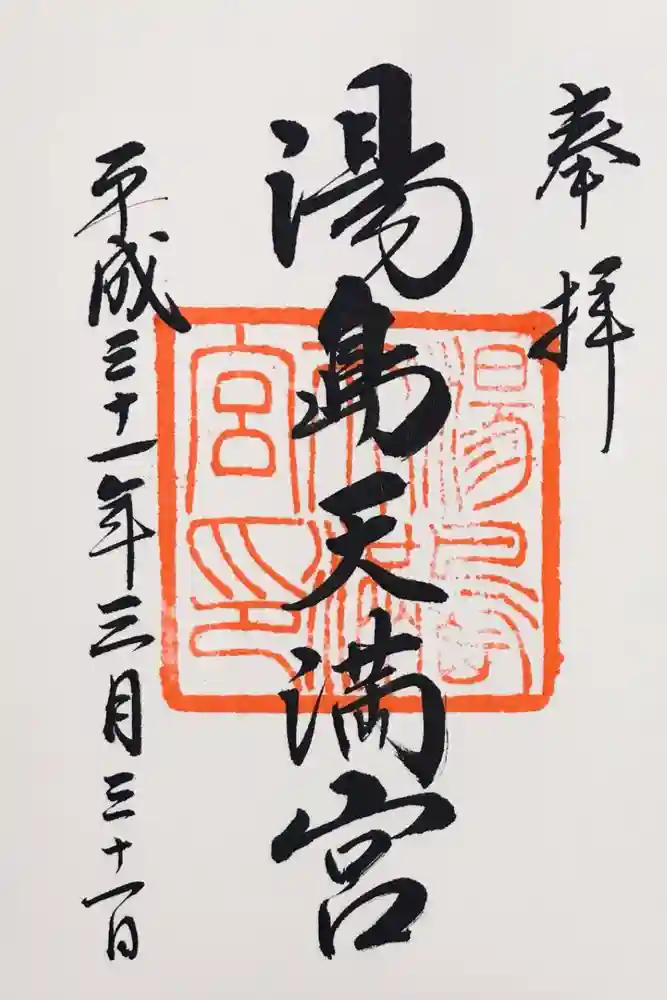 奉拝
湯島天満宮
平成三十一年三月三十一日
湯島
天満
宮印